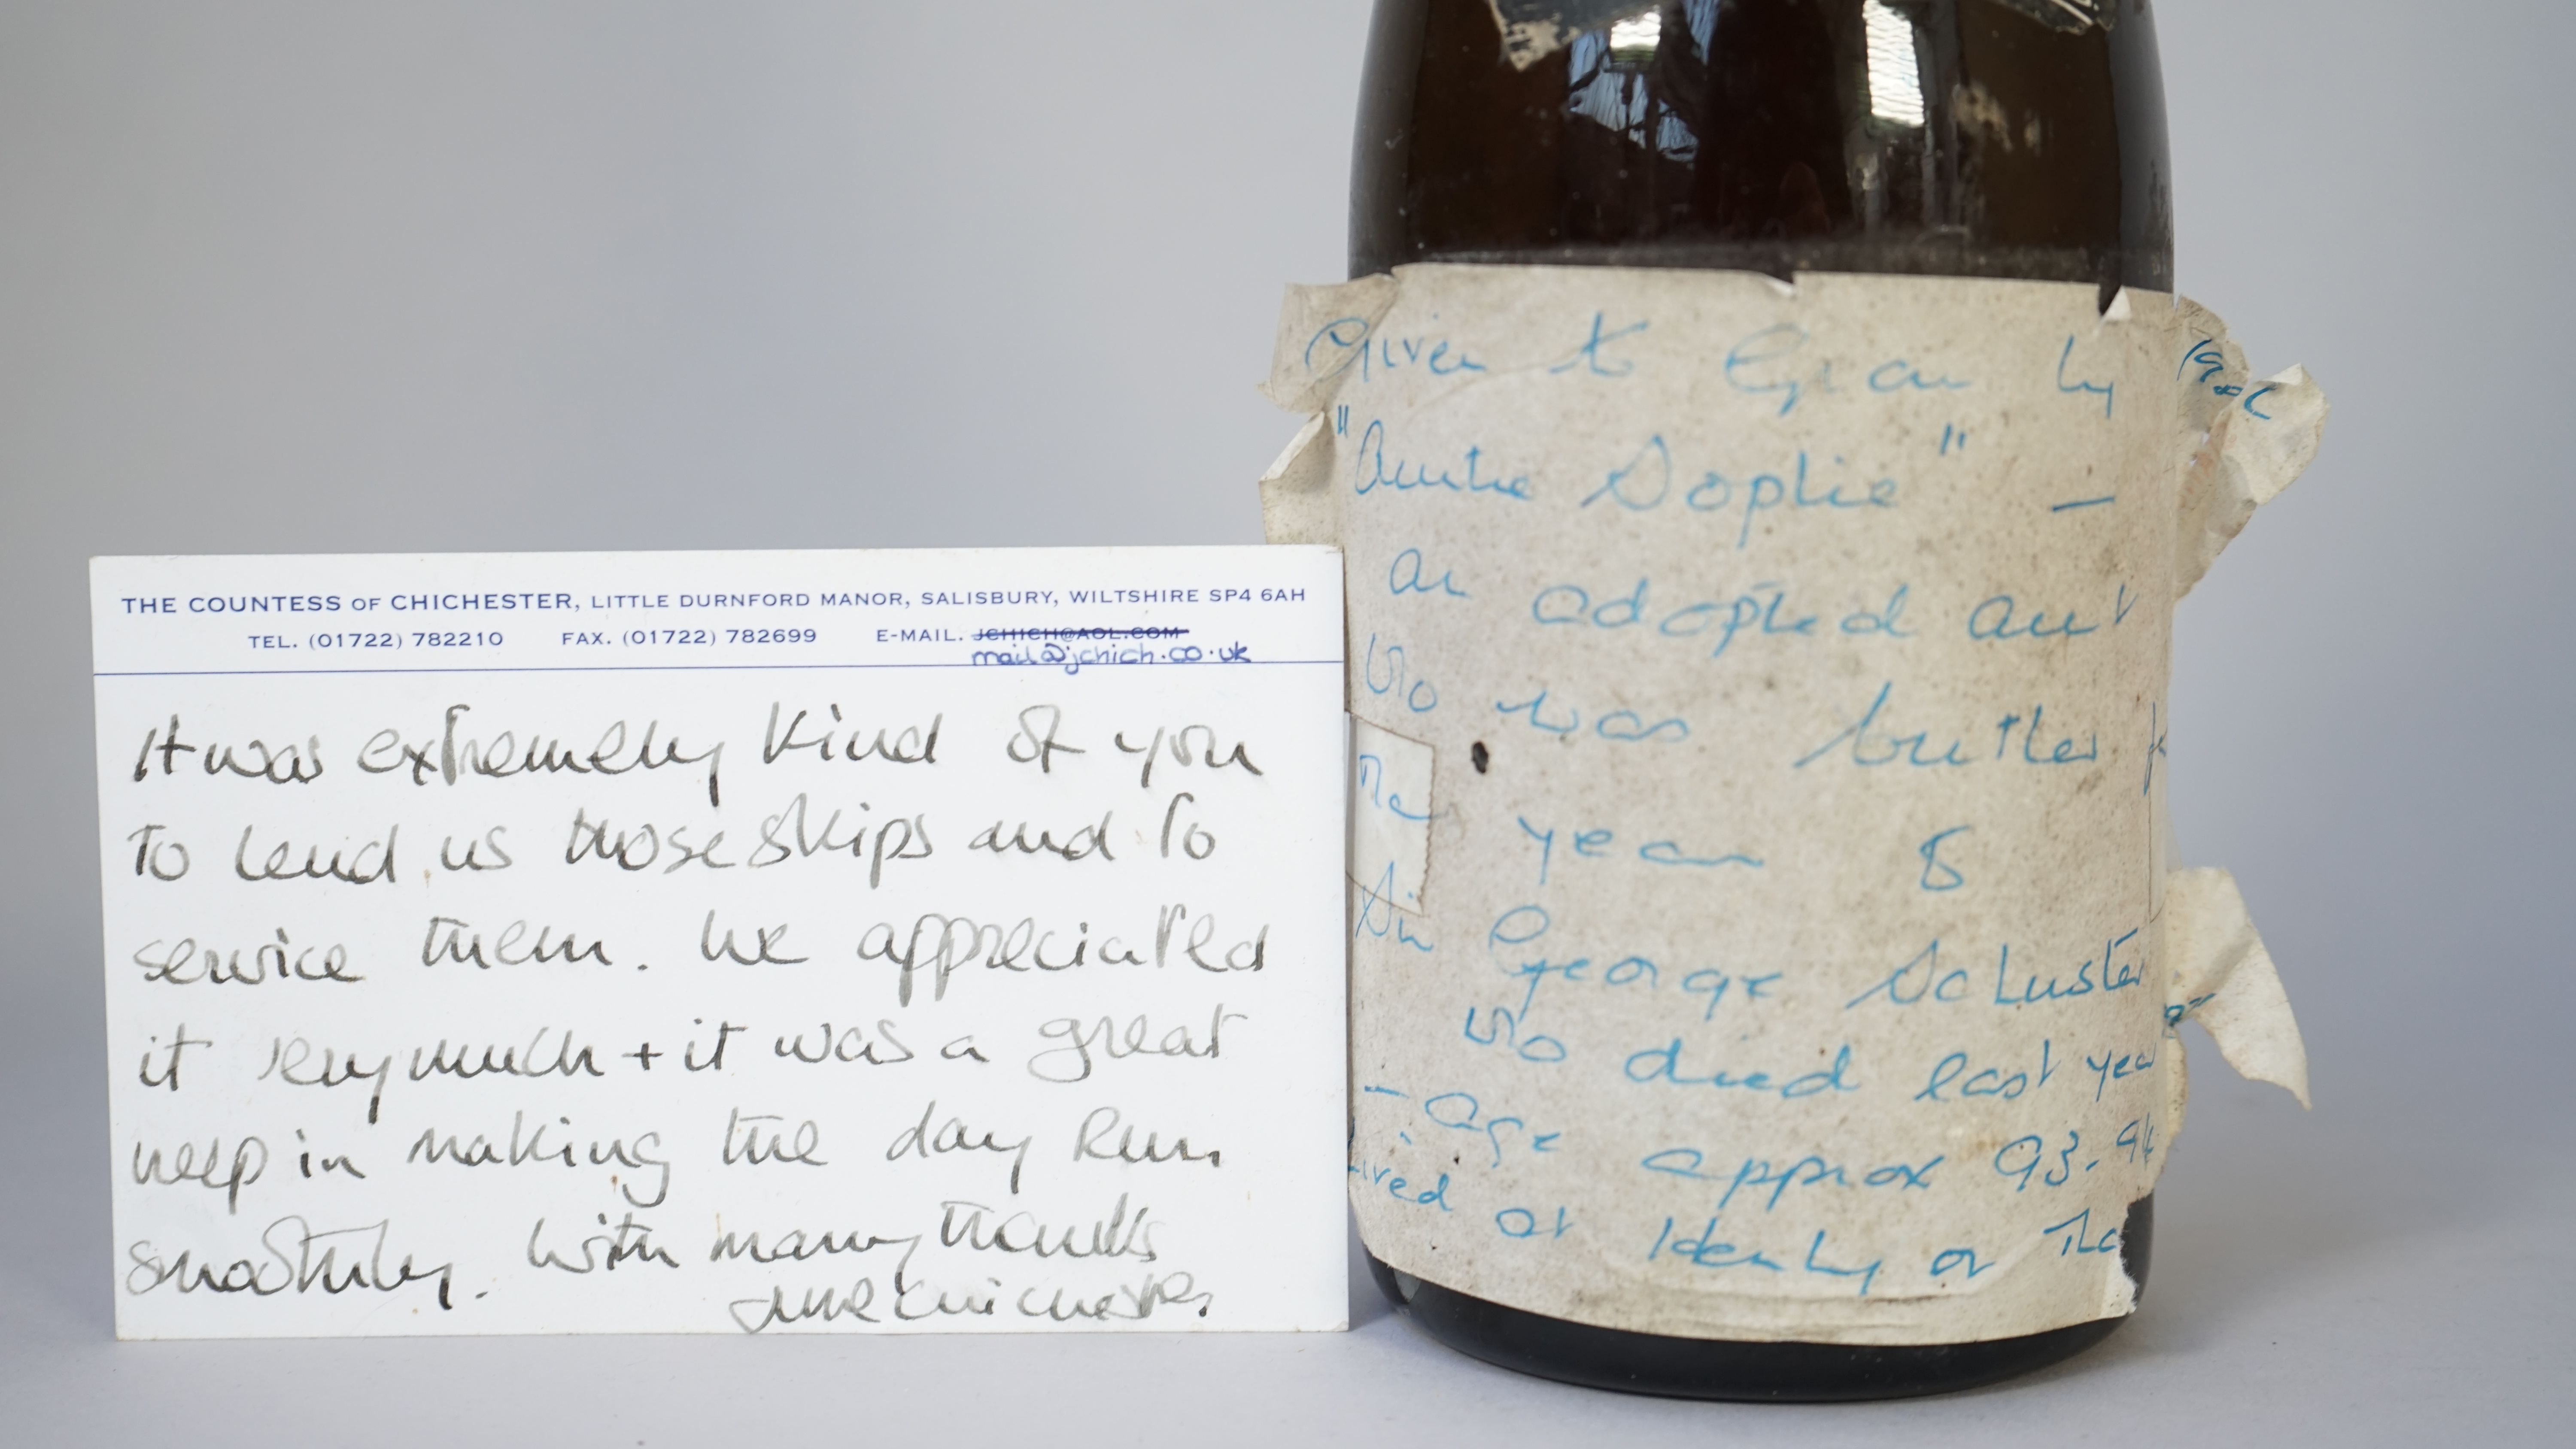 THE COUNTESS OF CHICHESTER, LITTLE DURNFORD MANOR, SALISBURY, WILTSHIRE SP4 6AH
TEL. (01722) 782210 FAX. (01722) 782699 E-MAIL. JCHICH@AOL.COM
mail@jchich.co.uk
It was extremely kind of you
to lend us those skips and to
service them. We appreciated
it very much + it was a great
help in making the day run
smoothly. With many thanks
June Chichester.
Given to Gran by
"Auntie Sophie" –
an adopted aunt
who was butler
many years
Sir George Schuster
who died last year
– age approx 93-94
Lived at or